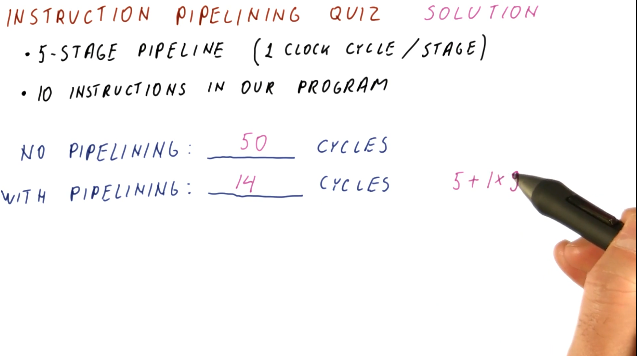 INSTRUCTION PIPELINING QUIZ SOLUTION
• 5-STAGE PIPELINE (1 CLOCK CYCLE/STAGE)
• 10 INSTRUCTIONS IN OUR PROGRAM
NO PIPELINING: 50 CYCLES
WITH PIPELINING: 14 CYCLES 5+1×9